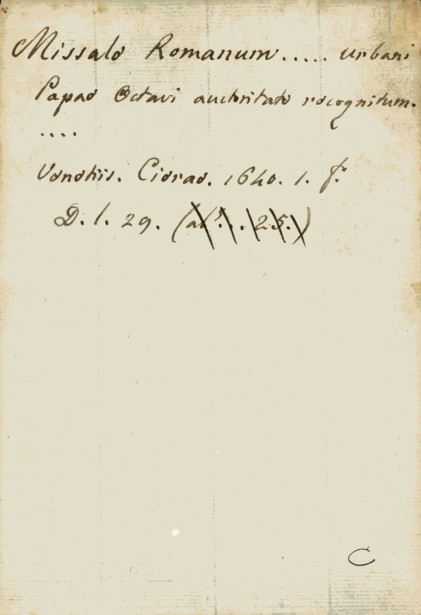 Missale Romanum..... Urbani
Papae Octavi auctoritate recognitum.
....
Venetiis. Cierae. 1640. 1. f.º
D. l. 29. (al ... 25.)
C